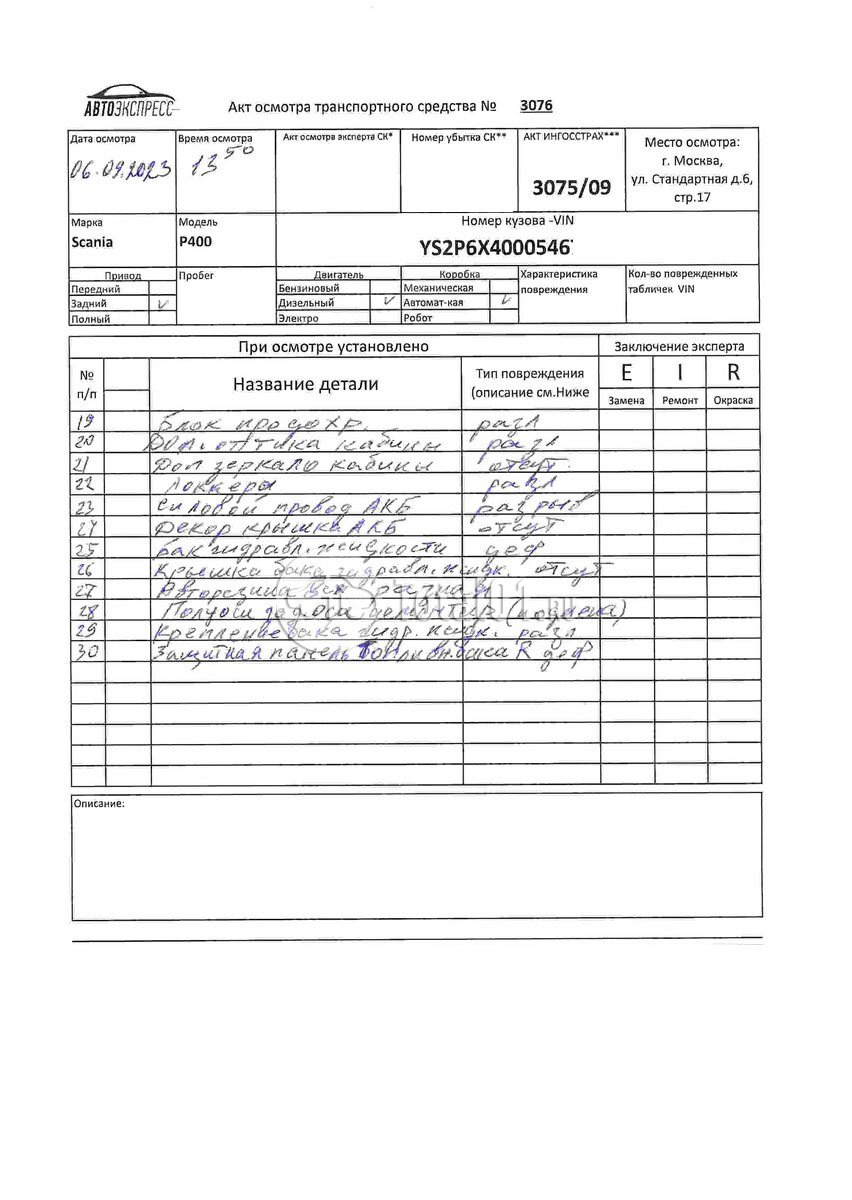 АВТОЭКСПРЕСС
Акт осмотра транспортного средства № 3076
Дата осмотра
06.09.2023
Время осмотра
13 50
Акт осмотра эксперта СК*
Номер убытка СК**
АКТ ИНГОССТРАХ***
3075/09
Место осмотра:
г. Москва,
ул. Стандартная д.6,
стр.17
Марка
Scania
Модель
P400
Номер кузова -VIN
YS2P6X4000546
Привод
Передний
Задний V
Полный
Пробег
Двигатель
Бензиновый
Дизельный V
Электро
Коробка
Механическая
Автомат-кая V
Робот
Характеристика
повреждения
Кол-во поврежденных
табличек VIN
При осмотре установлено
Заключение эксперта
№
п/п
Название детали
Тип повреждения
(описание см.Ниже
E I R
Замена Ремонт Окраска
19 Блок предохр. разл
20 Доп. оптика кабины разл
21 Доп зеркало кабины отсут.
22 Локкеры разл
23 Силовой провод АКБ разрыв
24 Декор крышка АКБ отсут
25 Бак гидравл. жидкости деф
26 Крышка бака гидравл. жидк. отсут
27 Авторезина вся разная
28 Полуоси зад. оси демонтир (подмена)
29 Крепление бака гидр. жидк. разл
30 Защитная панель топливн. бака R деф
Описание: